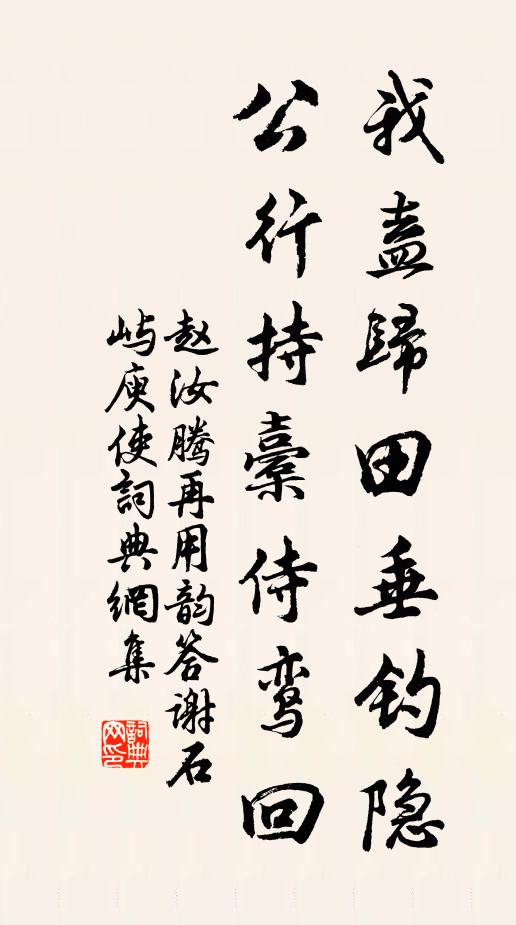 我盍歸田垂钓隐
公行持橐侍鸾回
赵汝腾再用韵答谢石
屿庾使詞典網集
詞典网印